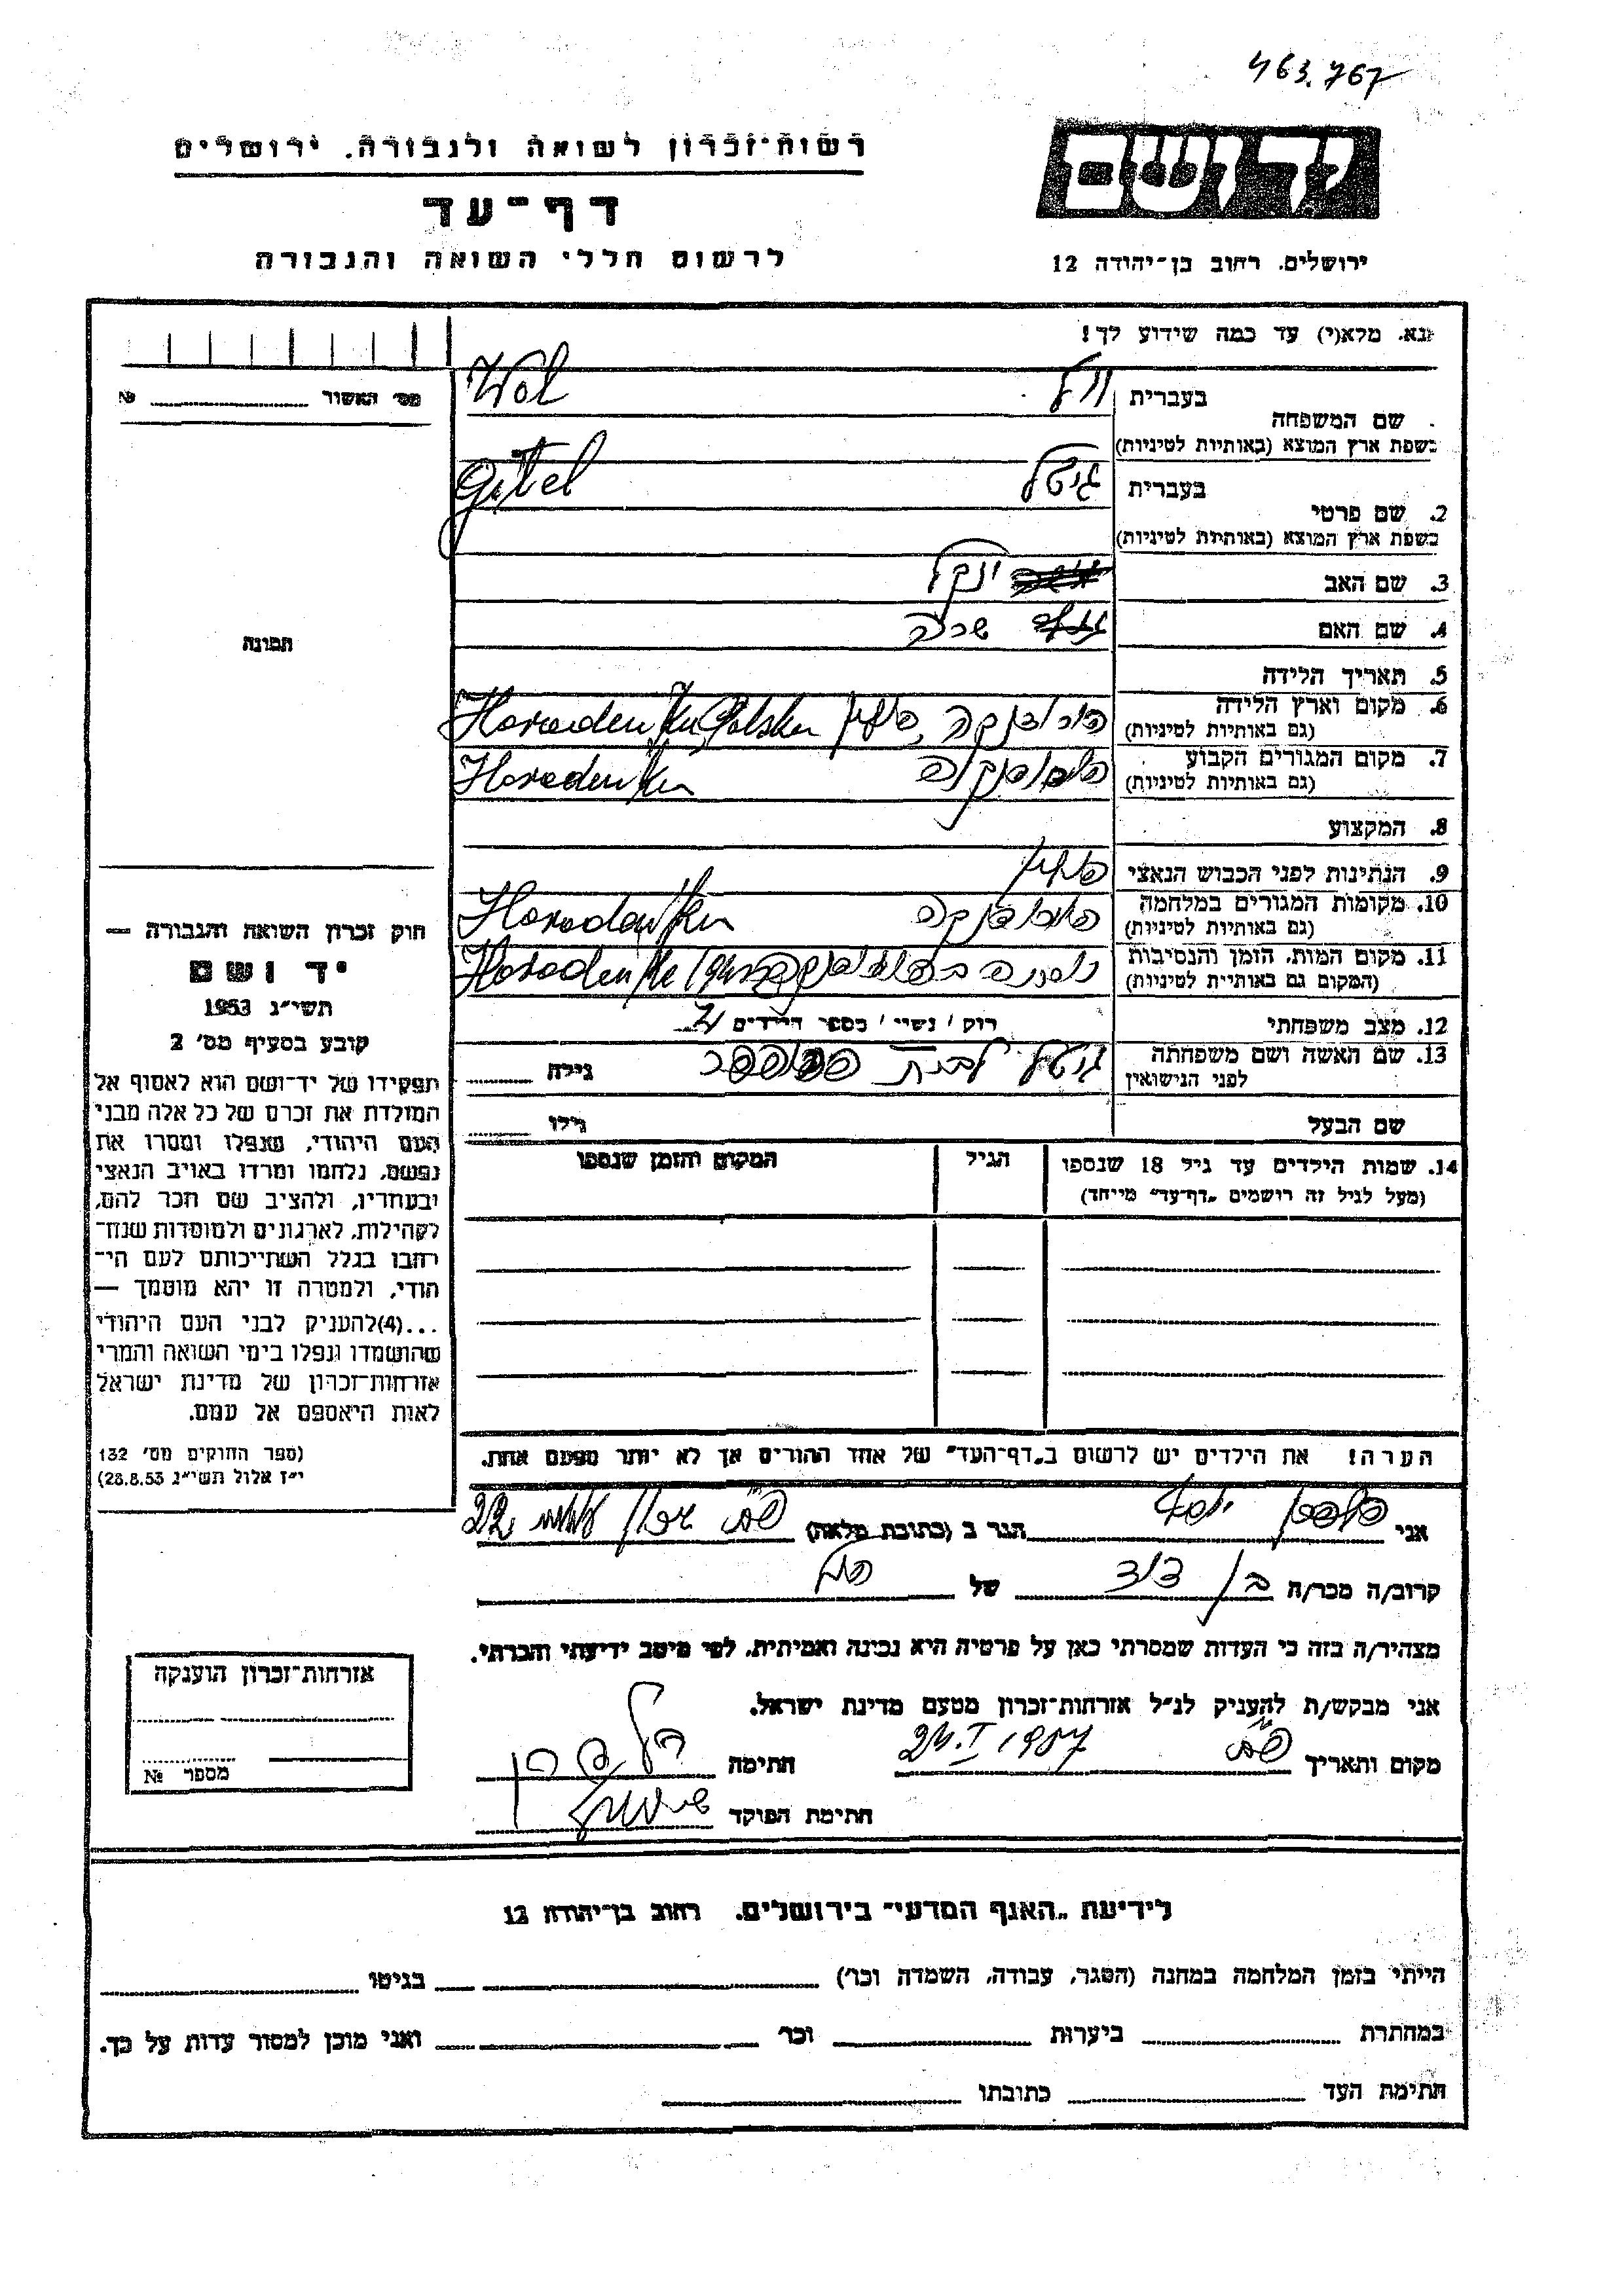 463.767
רשות־זכרון לשואה ולגבורה. ירושלים
דף־עד
לרשום חללי השואה והגבורה
ידושם
ירושלים. רחוב בן־יהודה 12
נא. מלא(י) עד כמה שידוע לך!
מס׳ האשור №
שם המשפחה
בעברית וול
בשפת ארץ המוצא (באותיות לטיניות) Wol
2. שם פרטי
בעברית גיטל
בשפת ארץ המוצא (באותיות לטיניות) Gitel
3. שם האב ינקל
4. שם האם שרה
5. תאריך הלידה
6. מקום וארץ הלידה
(גם באותיות לטיניות) הורודנקה, פולין Horodenka, Polska
7. מקום המגורים הקבוע
(גם באותיות לטיניות) Horodenka
8. המקצוע
9. הנתינות לפני הכבוש הנאצי פולין
10. מקומות המגורים במלחמה
(גם באותיות לטיניות) הורודנקה Horodenka
11. מקום המות, הזמן והנסיבות
(המקום גם באותיות לטיניות) Horodenka
12. מצב משפחתי רוק / נשוי / מספר הילדים
13. שם האשה ושם משפחתה
לפני הנישואין גיטל לבית גילה
שם הבעל גילו
14. שמות הילדים עד גיל 18 שנספו
(מעל לגיל זה רושמים „דף־עד" מיוחד)
הגיל
המקום והזמן שנספו
הערה! את הילדים יש לרשום ב„דף־העד" של אחד ההורים אך לא יותר מפעם אחת.
תמונה
חוק זכרון השואה והגבורה —
יד ושם
תשי״ג 1953
קובע בסעיף מס׳ 2
תפקידו של יד־ושם הוא לאסוף אל
המולדת את זכרם של כל אלה מבני
העם היהודי, שנפלו ומסרו את
נפשם, נלחמו ומרדו באויב הנאצי
ובעוזריו, ולהציב שם וזכר להם,
לקהילות, לארגונים ולמוסדות שנח־
רבו בגלל השתייכותם לעם הי־
הודי, ולמטרה זו יהא מוסמך —
...(4)להעניק לבני העם היהודי
שהושמדו ונפלו בימי השואה והמרי
אזרחות־זכרון של מדינת ישראל
לאות היאספם אל עמם.
(ספר החוקים מס׳ 132
י״ז אלול תשי״ג 28.8.53)
אני יוסף הגר ב (כתובת מלאה) 22
קרוב/ה מכר/ה בן דוד של
מצהיר/ה בזה כי העדות שמסרתי כאן על פרטיה היא נכונה ואמיתית, לפי מיטב ידיעתי והכרתי.
אני מבקש/ת להעניק לנ״ל אזרחות־זכרון מטעם מדינת ישראל.
מקום ותאריך 24.I 1957 חתימה
חתימת הפוקד
אזרחות־זכרון הוענקה
מספר №
לידיעת „האגף המדעי" בירושלים. רחוב בן־יהודה 12
הייתי בזמן המלחמה במחנה (הסגר, עבודה, השמדה וכר׳) בגיטו
במחתרת ביערות וכר׳ ואני מוכן למסור עדות על כך.
חתימת העד כתובתו